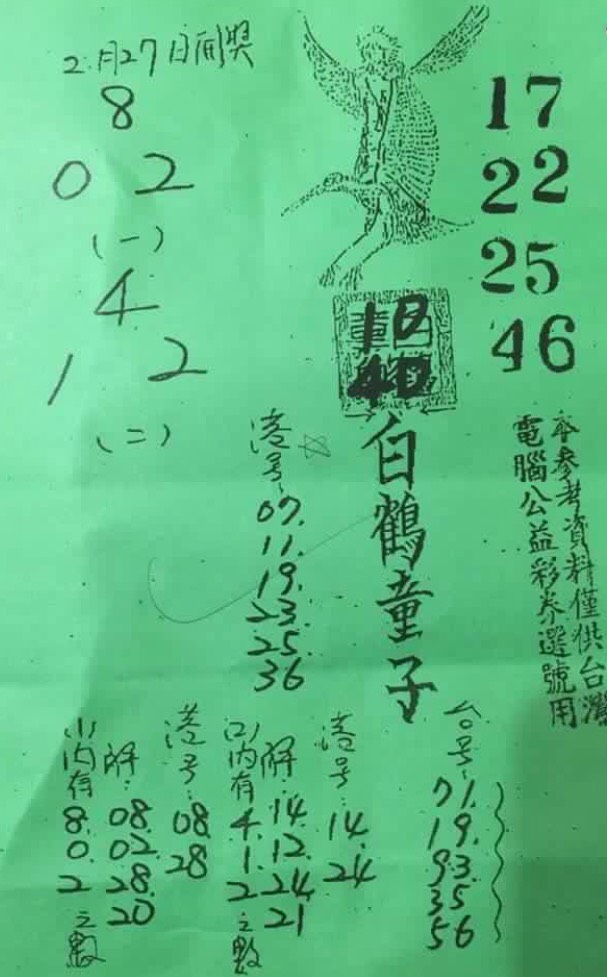 2月27日開獎
8
0 2
(一)
4
1 2
(二)
17
22
25
46
10
40
白鶴童子
本參考資料僅供台灣
電腦公益彩券選號用
港号
07.
11.
19.
23
25
36
台号:
71.
19.
93.
35
56
港号:
14.
24
解:
14.
12.
24
21
(二)内有
4.
1.
2
之數
港号:
08.
28
解:
08.
02.
28.
20
(一)内有
8.
0.
2
之數